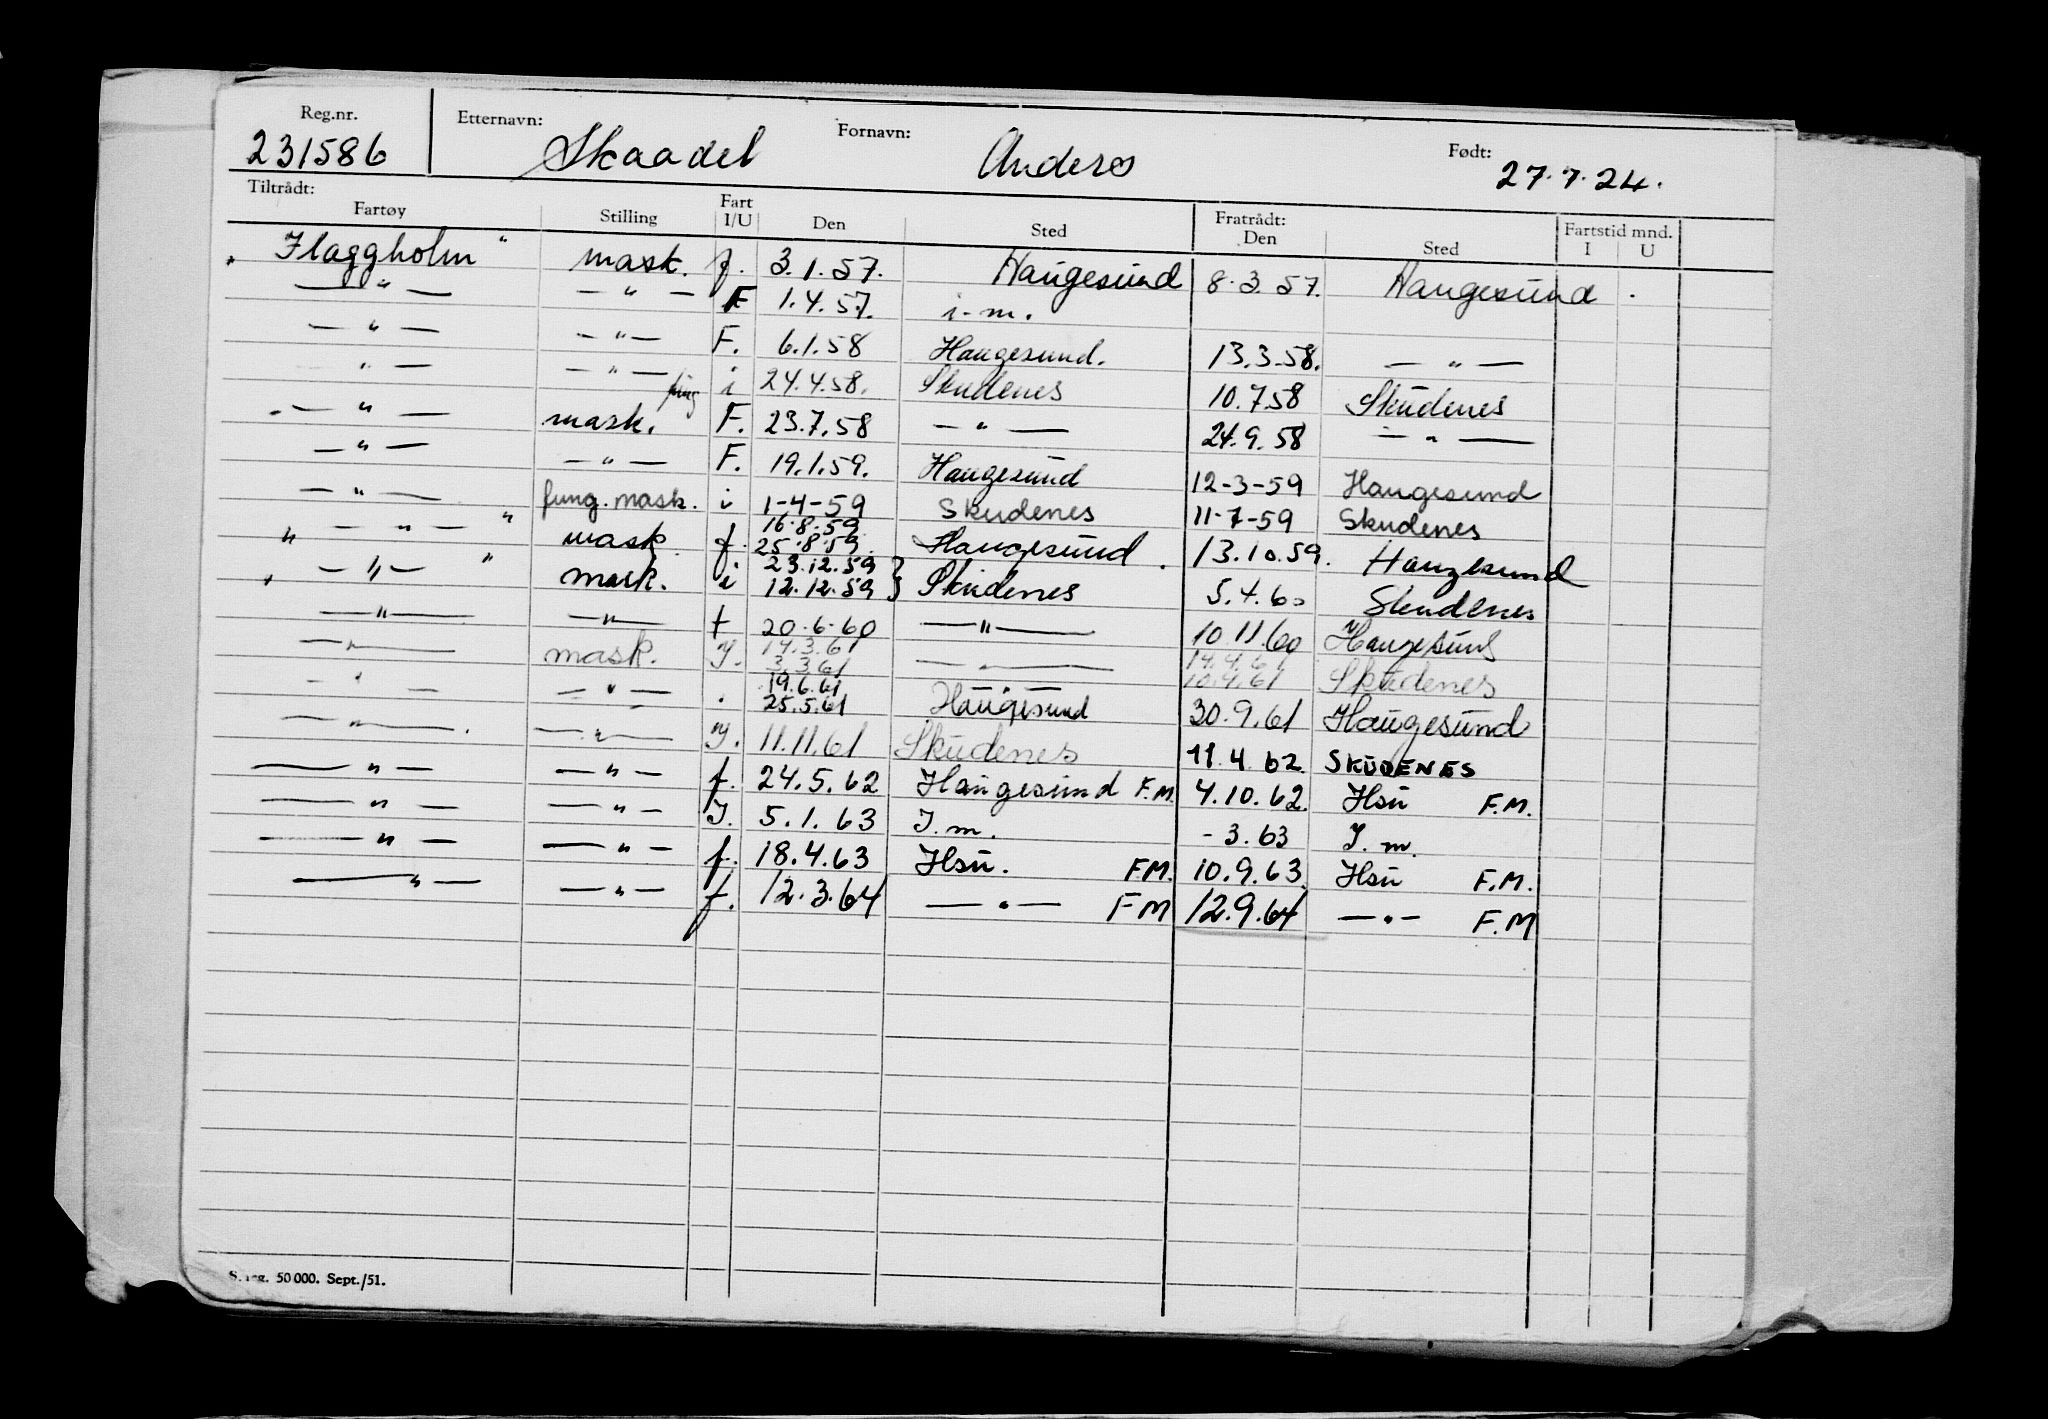 Reg.nr. Etternavn: Fornavn: Født:
231586 Skaadel Anders 27.7.24.
Tiltrådt: Fratrådt:
Fartøy Stilling Fart I/U Den Sted Den Sted Fartstid mnd. I U
"Flaggholm" mask. f. 3.1.57. Haugesund 8.3.57. Haugesund
— " — — " — F 1.4.57. i-m.
— " — — " — F. 6.1.58 Haugesund. 13.3.58. — " —
" — — " — i 24.4.58. Skudenes 10.7.58 Skudenes
— " — mask. fung F. 23.7.58 — " — 24.9.58 — " —
— " — — " — F. 19.1.59. Haugesund 12-3-59 Haugesund
— " — fung. mask. i 1-4-59 Skudenes 11-7-59 Skudenes
" — " — " mask. f. 16.8.59 25.8.59. Haugesund. 13.10.59. Haugesund
" — " — " mask. i i 23.12.59 12.12.59 } Skudenes 5.4.60 Skudenes
— " — — " — f 20.6.60 — " — 10.11.60 Haugesund
— " — mask. I. 17.3.61 3.3.61 — " — 14.4.61 10.4.61 Skudenes
— " — — " — . 19.6.61 25.5.61 Haugesund 30.9.61 Haugesund
— " — — " — I. 11.11.61 Skudenes 11.4.62. SKUDENES
— " — — " — f. 24.5.62 Haugesund F.M. 4.10.62. Hsu F.M.
— " — — " — I. 5.1.63 I.m. - 3.63 I.m.
— " — — " — f. 18.4.63 Hsu. F.M. 10.9.63. Hsu F.M.
— " — — " — f. 12.3.64 — " — FM 12.9.64 — " — F.M
50 000. Sept./51.